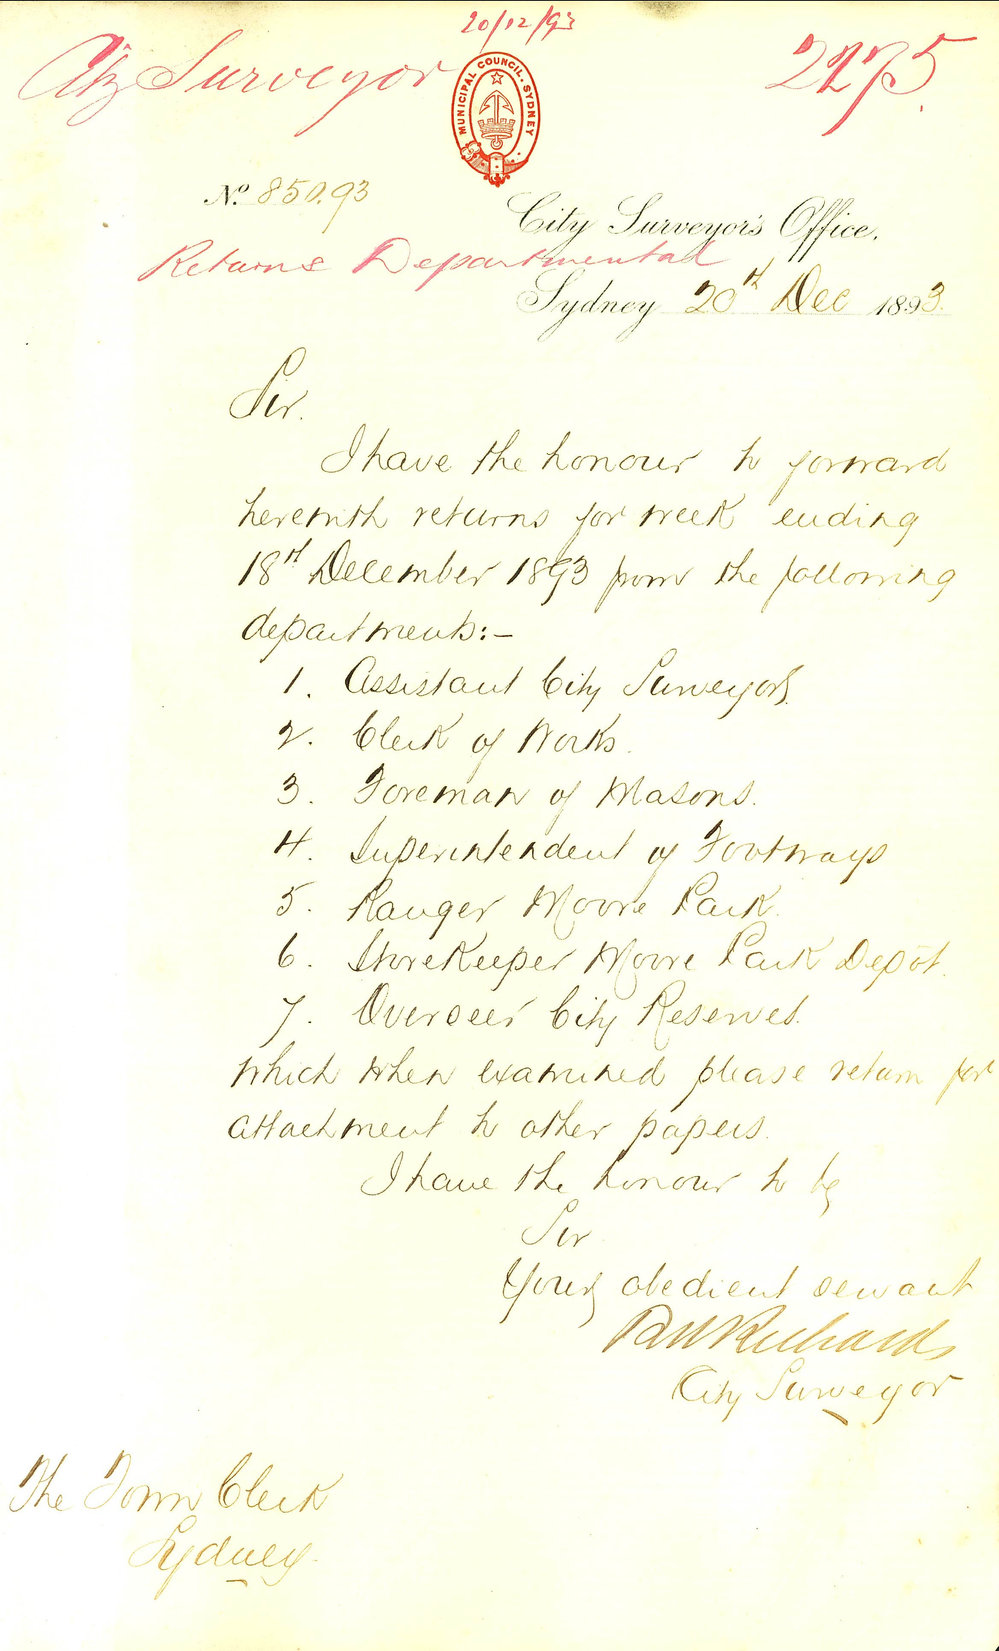 20/12/93
City Surveyor
2275
MUNICIPAL COUNCIL. SYDNEY
No. 850.93
City Surveyor's Office,
Returns Departmental
Sydney 20th Dec 1893.
Sir.
I have the honour to forward
herewith returns for week ending
18th December 1893 from the following
departments:-
1. Assistant City Surveyors.
2. Clerk of Works.
3. Foreman of Masons.
4. Superintendent of Footways
5. Ranger Moore Park.
6. Storekeeper Moore Park Depôt.
7. Overseer City Reserves.
which when examined please return for
attachment to other papers.
I have the honour to be
Sir
Your obedient servant
Richards
City Surveyor
The Town Clerk
Sydney.